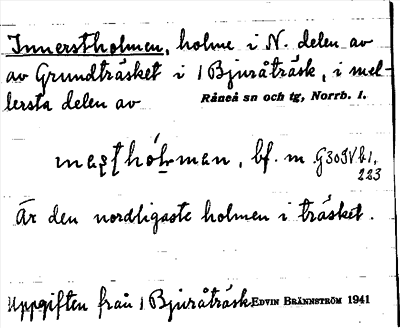 Innerstholmen, holme i N. delen av
av Grundträsket i 1 Bjuråträsk, i mel-
lersta delen av Råneå sn och tg, Norrb. l.
bf. m
Är den nordligaste holmen i träsket.
Uppgiften från 1 Bjuråträsk EDVIN BRÄNNSTRÖM 1941